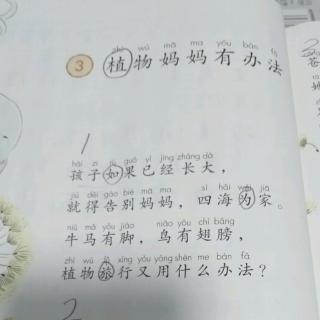 zhí wù mā ma yǒu bàn fǎ
3 植物妈妈有办法
1
hái zi rú guǒ yǐ jīng zhǎng dà
孩子如果已经长大，
jiù děi gào bié mā ma sì hǎi wéi jiā
就得告别妈妈，四海为家。
niú mǎ yǒu jiǎo niǎo yǒu chì bǎng
牛马有脚，鸟有翅膀，
zhí wù lǚ xíng yòu yòng shén me bàn fǎ
植物旅行又用什么办法？
2